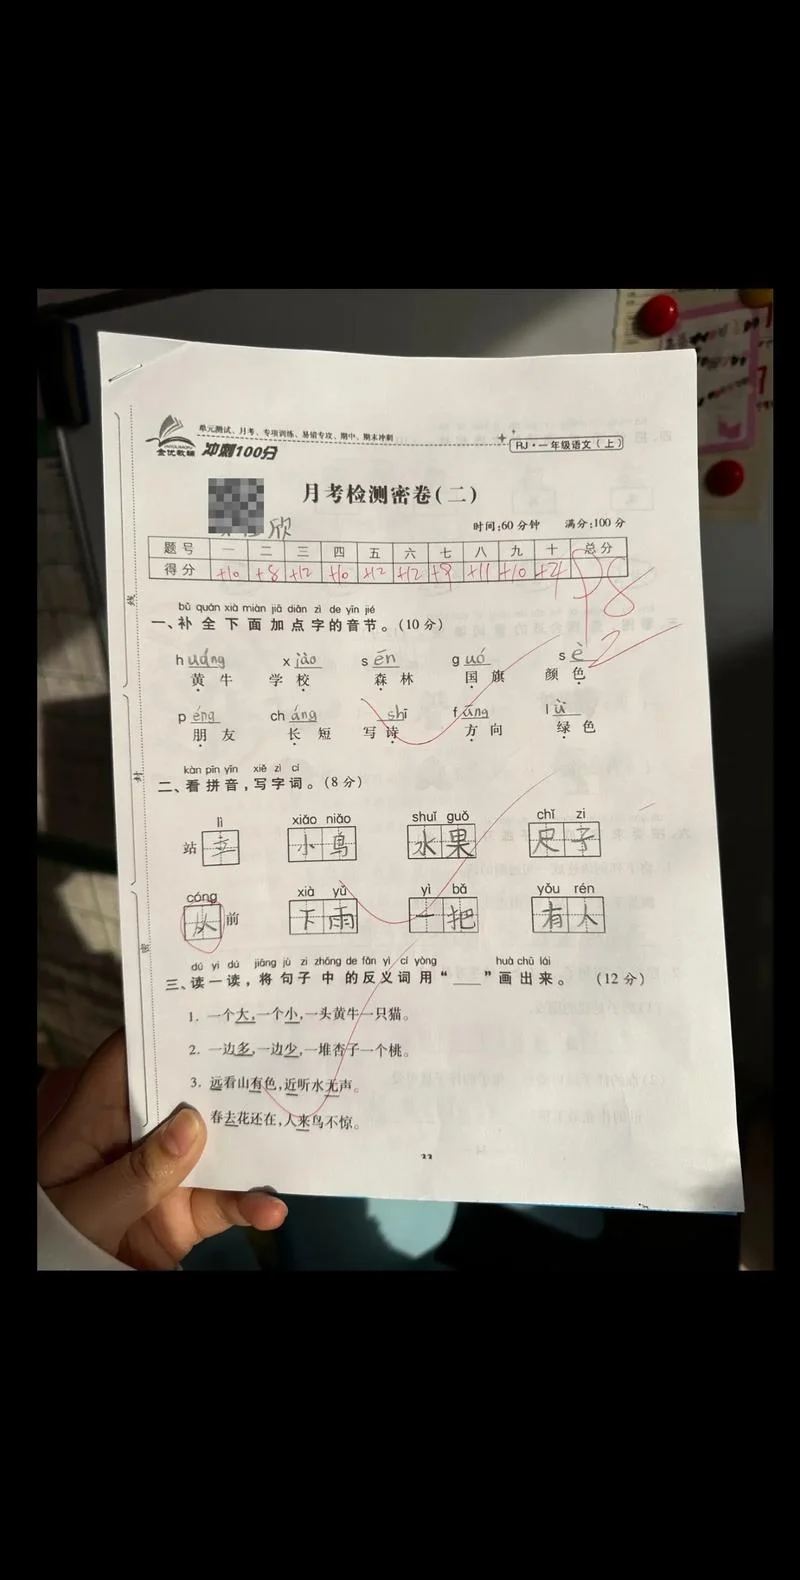 单元测试、月考、专项训练、易错专攻、期中、期末冲刺
金优教辅 冲刺100分
RJ·一年级语文(上)
月考检测密卷(二)
欣
时间:60分钟 满分:100分
题号 一 二 三 四 五 六 七 八 九 十 总分
得分 +10 +8 +12 +10 +12 +12 +9 +11 +10 +4 98
bǔ quán xià miàn jiā diǎn zì de yīn jié
一、补全下面加点字的音节。(10分)
h uáng x iào s ēn g uó s è
黄牛 学校 森林 国旗 颜色
p éng ch áng shī f āng l ǜ
朋友 长短 写诗 方向 绿色
kàn pīn yīn xiě zì cí
二、看拼音,写字词。(8分)
lì xiǎo niǎo shuǐ guǒ chǐ zi
站 立 小鸟 水果 尺子
cóng xià yǔ yì bǎ yǒu rén
从 前 下雨 一把 有人
dú yi dú jiāng jù zi zhōng de fǎn yì cí yòng huà chū lái
三、读一读,将句子中的反义词用“____”画出来。(12分)
1. 一个大,一个小,一头黄牛一只猫。
2. 一边多,一边少,一堆杏子一个桃。
3. 远看山有色,近听水无声。
春去花还在,人来鸟不惊。
线
封
密